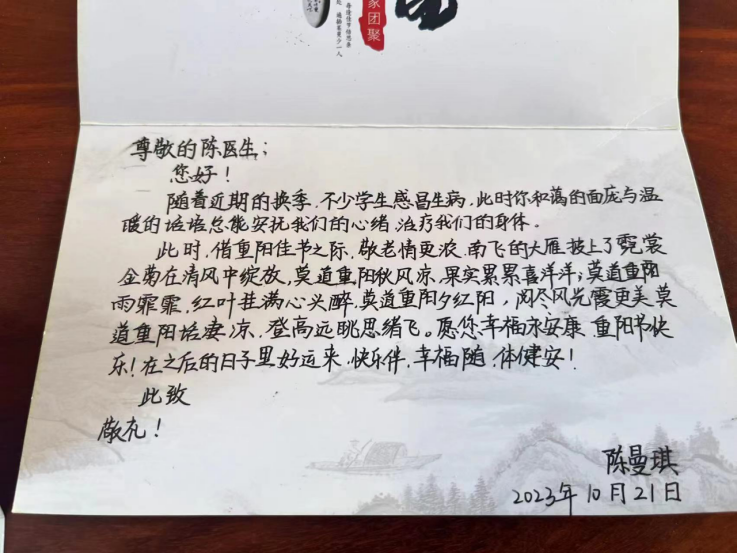 家团聚
每逢佳节倍思亲
遍插茱萸少一人
尊敬的陈医生：
您好！
随着近期的换季，不少学生感冒生病，此时你和蔼的面庞与温
暖的话语总能安抚我们的心绪，治疗我们的身体。
此时，借重阳佳节之际，敬老情更浓，南飞的大雁披上了霓裳
金菊在清风中绽放，莫道重阳秋风凉，果实累累喜洋洋；莫道重阳
雨霏霏，红叶片满心头醉，莫道重阳夕红阳，阅尽风光霞更美莫
道重阳话凄凉，登高远眺思绪飞。愿您幸福永安康，重阳节快
乐！在之后的日子里好运来，快乐伴，幸福随，体健安！
此致
敬礼！
陈曼琪
2023年10月21日